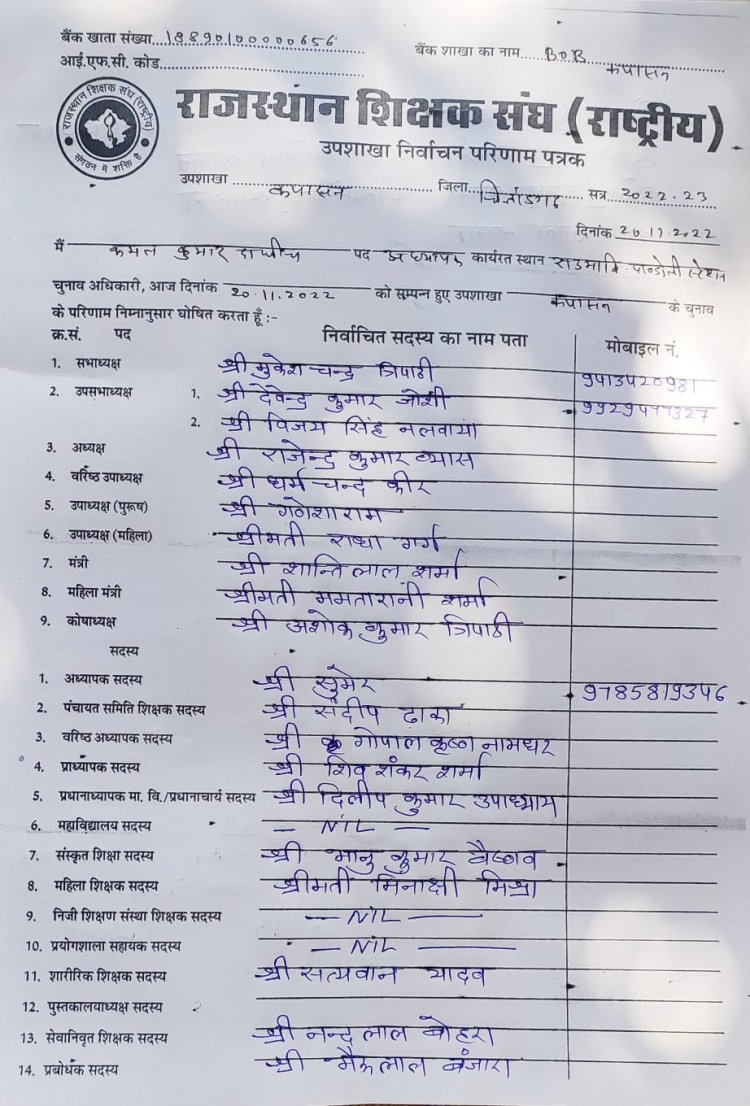 बैंक खाता संख्या 18890100000656 बैंक शाखा का नाम B.O.B कपासन
आई.एफ.सी. कोड
राजस्थान शिक्षक संघ (राष्ट्रीय)
संगठन में शक्ति है
राजस्थान शिक्षक संघ (राष्ट्रीय)
उपशाखा निर्वाचन परिणाम पत्रक
उपशाखा कपासन जिला चित्तौड़गढ़ सत्र 2022-23
दिनांक 20.11.2022
मैं कमल कुमार दाधीच पद अध्यापक कार्यरत स्थान राउमावि पाण्डोली स्टेशन
चुनाव अधिकारी, आज दिनांक 20.11.2022 को सम्पन हुए उपशाखा कपासन के चुनाव
के परिणाम निम्नानुसार घोषित करता हूँ :-
क्र.सं. पद निर्वाचित सदस्य का नाम पता मोबाइल नं.
1. सभाध्यक्ष श्री मुकेश चन्द्र त्रिपाठी 9413420981
2. उपसभाध्यक्ष 1. श्री देवेन्द्र कुमार जोशी
2. श्री विजय सिंह नलवाया
3. अध्यक्ष श्री राजेन्द्र कुमार व्यास
4. वरिष्ठ उपाध्यक्ष श्री धर्म चन्द कीर
5. उपाध्यक्ष (पुरूष) श्री गणेशाराम
6. उपाध्यक्ष (महिला) श्रीमती राधा गर्ग
7. मंत्री श्री शान्ति लाल शर्मा
8. महिला मंत्री श्रीमती ममतारानी शर्मा
9. कोषाध्यक्ष श्री अशोक कुमार त्रिपाठी
सदस्य
1. अध्यापक सदस्य श्री सुमेर 9785819346
2. पंचायत समिति शिक्षक सदस्य श्री संदीप ढाका
3. वरिष्ठ अध्यापक सदस्य श्री गोपाल कृष्ण नामधर
4. प्राध्यापक सदस्य श्री शिव शंकर शर्मा
5. प्रधानाध्यापक मा. वि./प्रधानाचार्य सदस्य श्री दिलीप कुमार उपाध्याय
6. महाविद्यालय सदस्य — NIL —
7. संस्कृत शिक्षा सदस्य श्री भानु कुमार वैष्णव
8. महिला शिक्षक सदस्य श्रीमती मिनाक्षी मिश्रा
9. निजी शिक्षण संस्था शिक्षक सदस्य — NIL —
10. प्रयोगशाला सहायक सदस्य — NIL —
11. शारीरिक शिक्षक सदस्य श्री सत्यवान यादव
12. पुस्तकालयाध्यक्ष सदस्य
13. सेवानिवृत शिक्षक सदस्य श्री नन्द लाल बोहरा
14. प्रबोधक सदस्य श्री भैरू लाल बंजारा